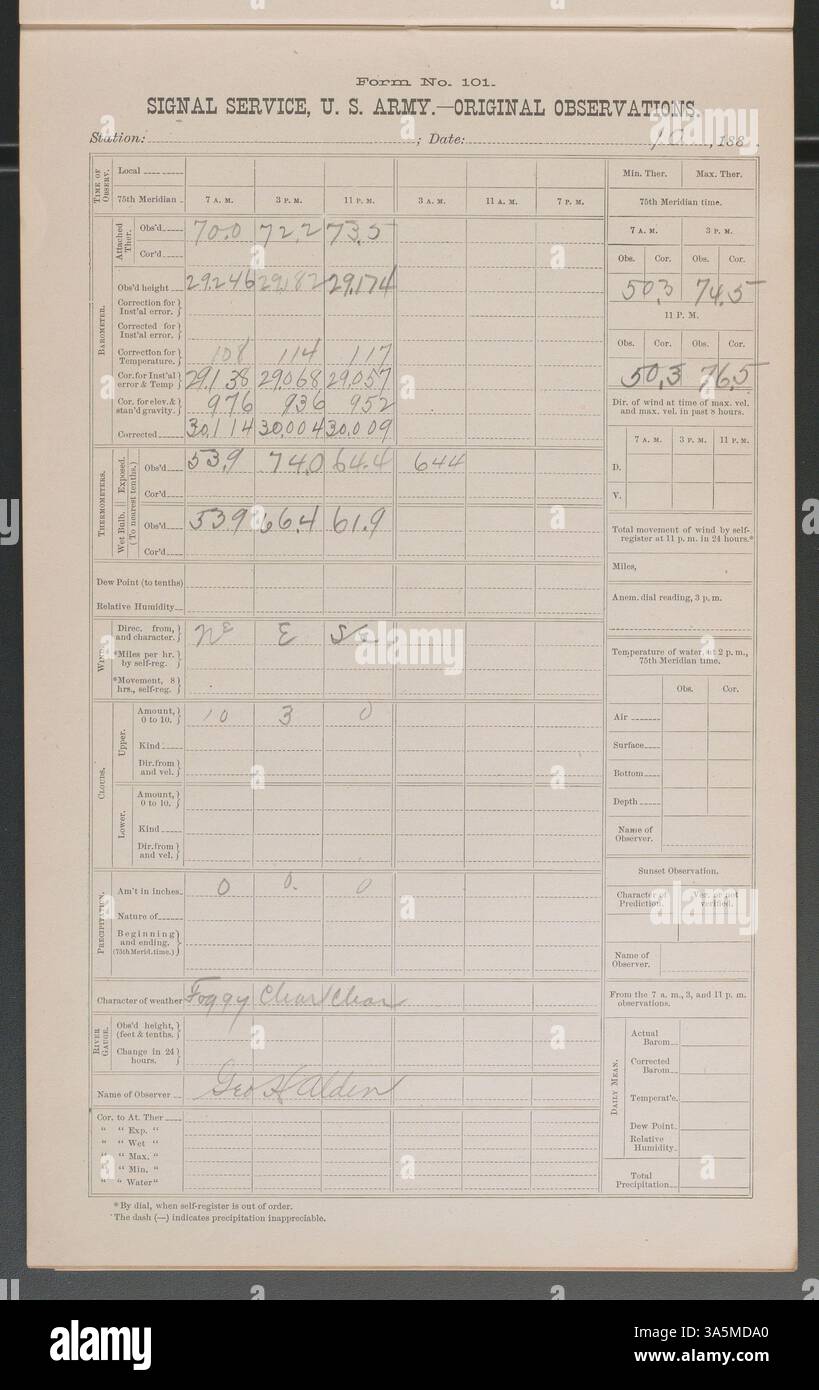 Form No. 101.
SIGNAL SERVICE, U. S. ARMY.—ORIGINAL OBSERVATIONS.
Station: ; Date: 10, 188 .
TIME OF OBSERV.
Local
75th Meridian 7 A. M. 3 P. M. 11 P. M. 3 A. M. 11 A. M. 7 P. M.
BAROMETER.
Attached Ther.
Obs'd 70.0 72.2 73.5
Cor'd
Obs'd height 29.246 29.182 29.174
Correction for Inst'al error.
Corrected for Inst'al error.
Correction for Temperature. 108 114 117
Cor. for Inst'al error & Temp 29.138 29.068 29.057
Cor. for elev. & stan'd gravity. 976 936 952
Corrected 30.114 30.004 30.009
THERMOMETERS.
Exposed. (To nearest tenths.)
Obs'd 53.9 74.0 64.4 644
Cor'd
Wet Bulb.
Obs'd 53.9 66.4 61.9
Cor'd
Dew Point (to tenths)
Relative Humidity
WIND.
Direc. from, and character. NE E SE
*Miles per hr. by self-reg.
*Movement, 8 hrs., self-reg.
CLOUDS.
Upper.
Amount, 0 to 10. 10 3 0
Kind
Dir. from and vel.
Lower.
Amount, 0 to 10.
Kind
Dir. from and vel.
PRECIPITATION.
Am't in inches 0 0. 0
Nature of
Beginning and ending. (75th Merid. time.)
Character of weather Foggy Clear Clear
RIVER GAUGE.
Obs'd height, (feet & tenths.)
Change in 24 hours.
Name of Observer Geo H Alden
Cor. to At. Ther
" " Exp. "
" " Wet "
" " Max. "
" " Min. "
" " Water "
* By dial, when self-register is out of order.
The dash (—) indicates precipitation inappreciable.
Min. Ther. Max. Ther.
75th Meridian time.
7 A. M. 3 P. M.
Obs. Cor. Obs. Cor.
50.3 74.5
11 P. M.
Obs. Cor. Obs. Cor.
50.3 76.5
Dir. of wind at time of max. vel. and max. vel. in past 8 hours.
7 A. M. 3 P. M. 11 P. M.
D.
V.
Total movement of wind by self-register at 11 p. m. in 24 hours.*
Miles,
Anem. dial reading, 3 p. m.
Temperature of water, at 2 p. m., 75th Meridian time.
Obs. Cor.
Air
Surface
Bottom
Depth
Name of Observer.
Sunset Observation.
Character of Prediction. Ver. or not verified.
Name of Observer.
From the 7 a. m., 3, and 11 p. m. observations.
DAILY MEAN.
Actual Barom
Corrected Barom
Temperat'e.
Dew Point.
Relative Humidity.
Total Precipitation
alamy
Image ID: 3A5MDA0
www.alamy.com